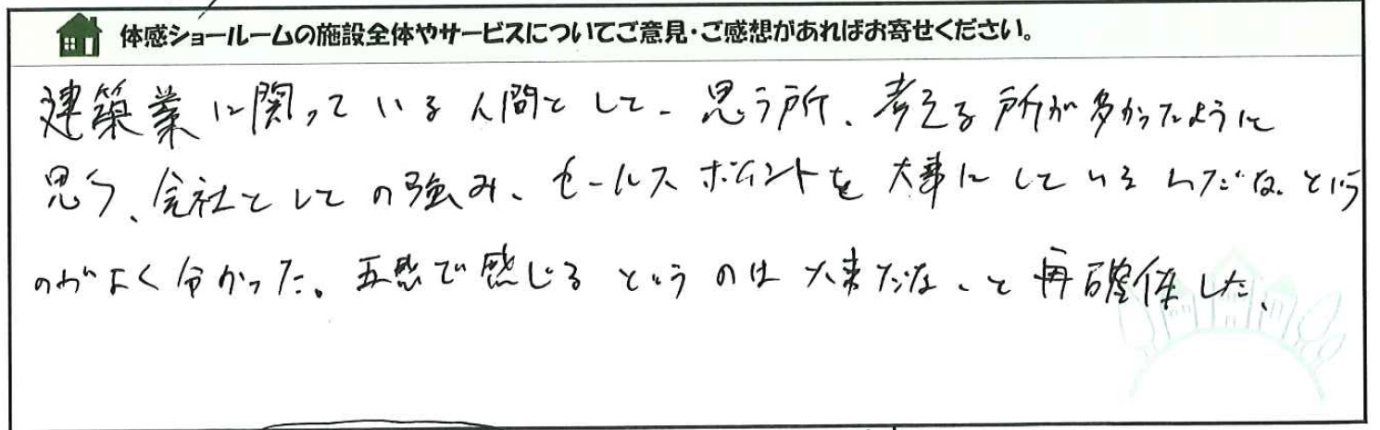 体感ショールームの施設全体やサービスについてご意見・ご感想があればお寄せください。
建築業に関っている人間として、思う所、考える所が多かったように
思う、会社としての強み、セールスポイントを大事にしているんだな。という
のがよく分かった。五感で感じるというのは大事だな、と再確認した、